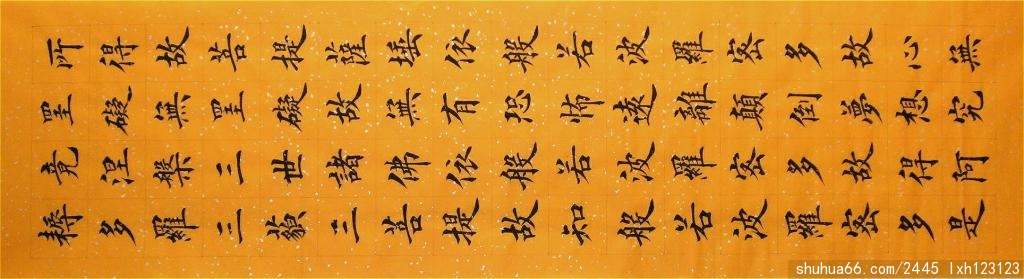 所得故菩提薩埵依般若波羅蜜多故心無
罣礙無罣礙故無有恐怖遠離顛倒夢想究
竟涅槃三世諸佛依般若波羅蜜多故得阿
耨多羅三藐三菩提故知般若波羅蜜多是
shuhua66.com/2445 lxh123123